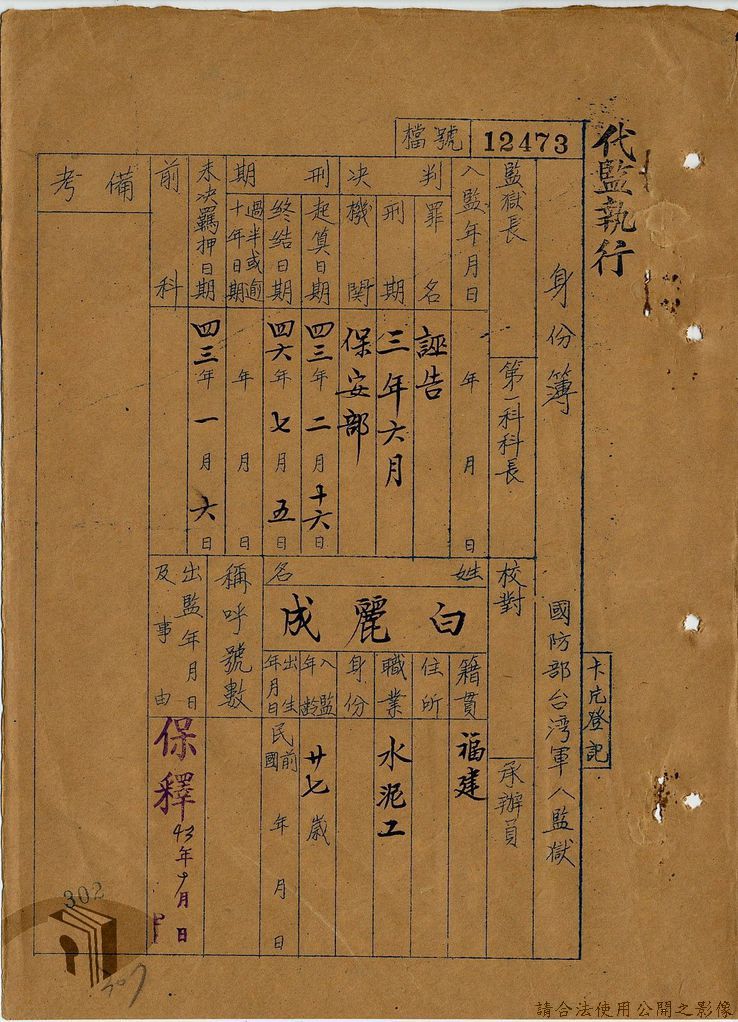 代監執行
檔號
12473
身份簿
國防部台湾軍人監獄
卡片登記
監獄長
第一科科長
校對
承辦員
入監年月日
年 月 日
判决
罪名
誣告
刑期
三年六月
機関
保安部
刑期
起算日期
四三年二月十六日
終结日期
四六年七月五日
過半或逾十年日期
年 月 日
未决羈押日期
四三年一月六日
前科
備考
姓名
白麗成
籍貫
福建
住所
職業
水泥工
身份
入監年齡
廿七歲
出生年月日
民國前 年 月 日
稱呼號數
出監年月日及事由
保釋
43年
月
日
302
請合法使用公開之影像